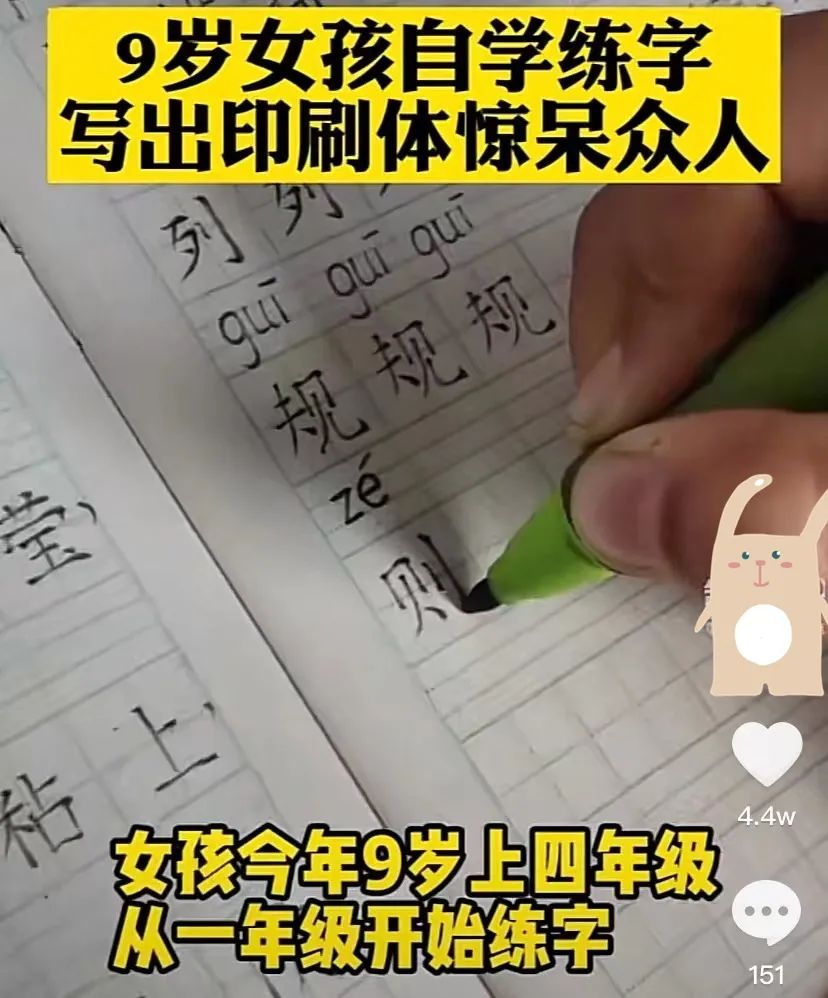 9岁女孩自学练字
写出印刷体惊呆众人
列 列
guī guī guī
规 规 规
zé
则
莹
粘 上
女孩今年9岁上四年级
从一年级开始练字
4.4w
151